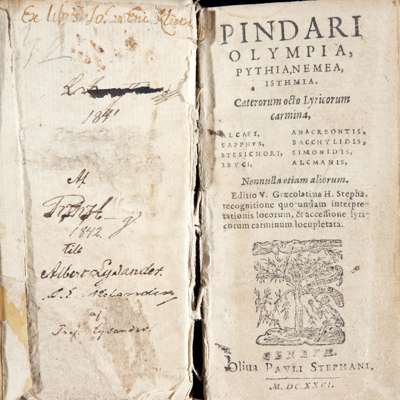 Ex libris
1841
Af
1842.
till
Albert Lysander.
af
Prof. Lysander.
PINDARI
OLYMPIA,
PYTHIA, NEMEA,
ISTHMIA.
Cæterorum octo Lyricorum
carmina,
ALCÆI, ANACREONTIS,
SAPPHVS, BACCHYLIDIS,
STESICHORI, SIMONIDIS,
IBYCI, ALCMANIS.
Nonnulla etiam aliorum.
Editio V. Græcolatina H. Steph.
recognitione quorundam interpre-
tationis locorum, & accessione lyri-
corum carminum locupletata.
Oliua PAVLI STEPHANI,
M. DC XXVI.